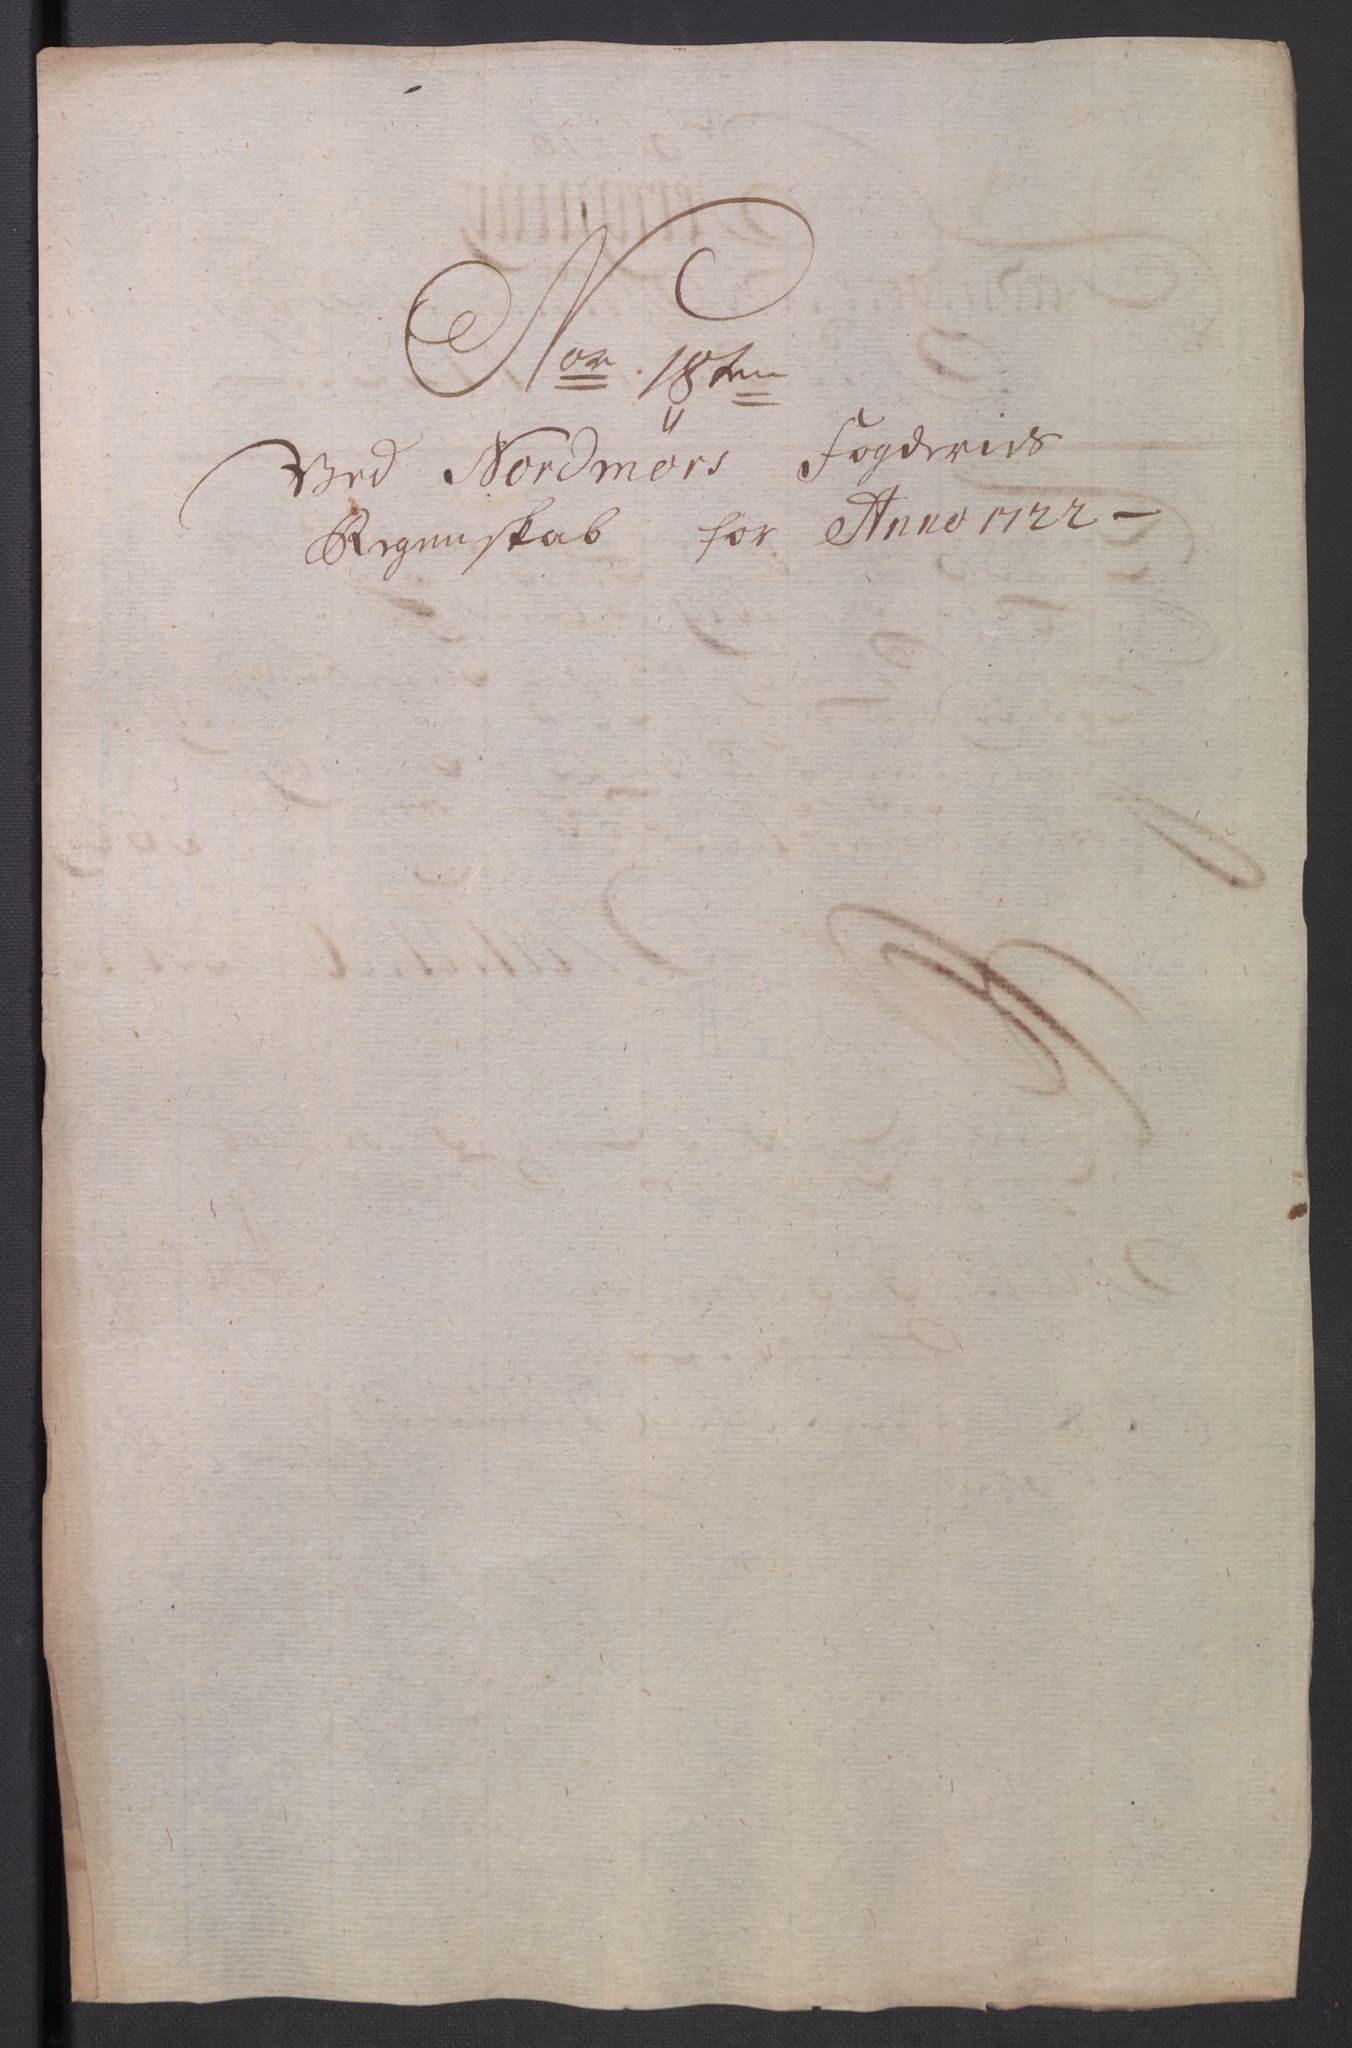 Nor 18ten
Ved Nordmørs Fogderies
Regenskab for Anno 1722 –